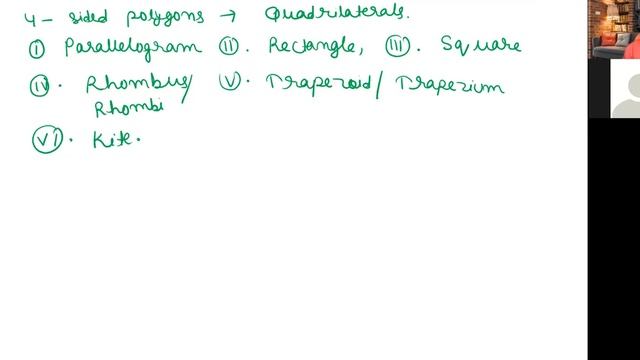 4 - sided polygons → Quadrilaterals.
(i) Parallelogram (ii). Rectangle, (iii). Square
(iv). Rhombus/ (v). Trapezoid/ Trapezium
Rhombi
(vi). Kite.